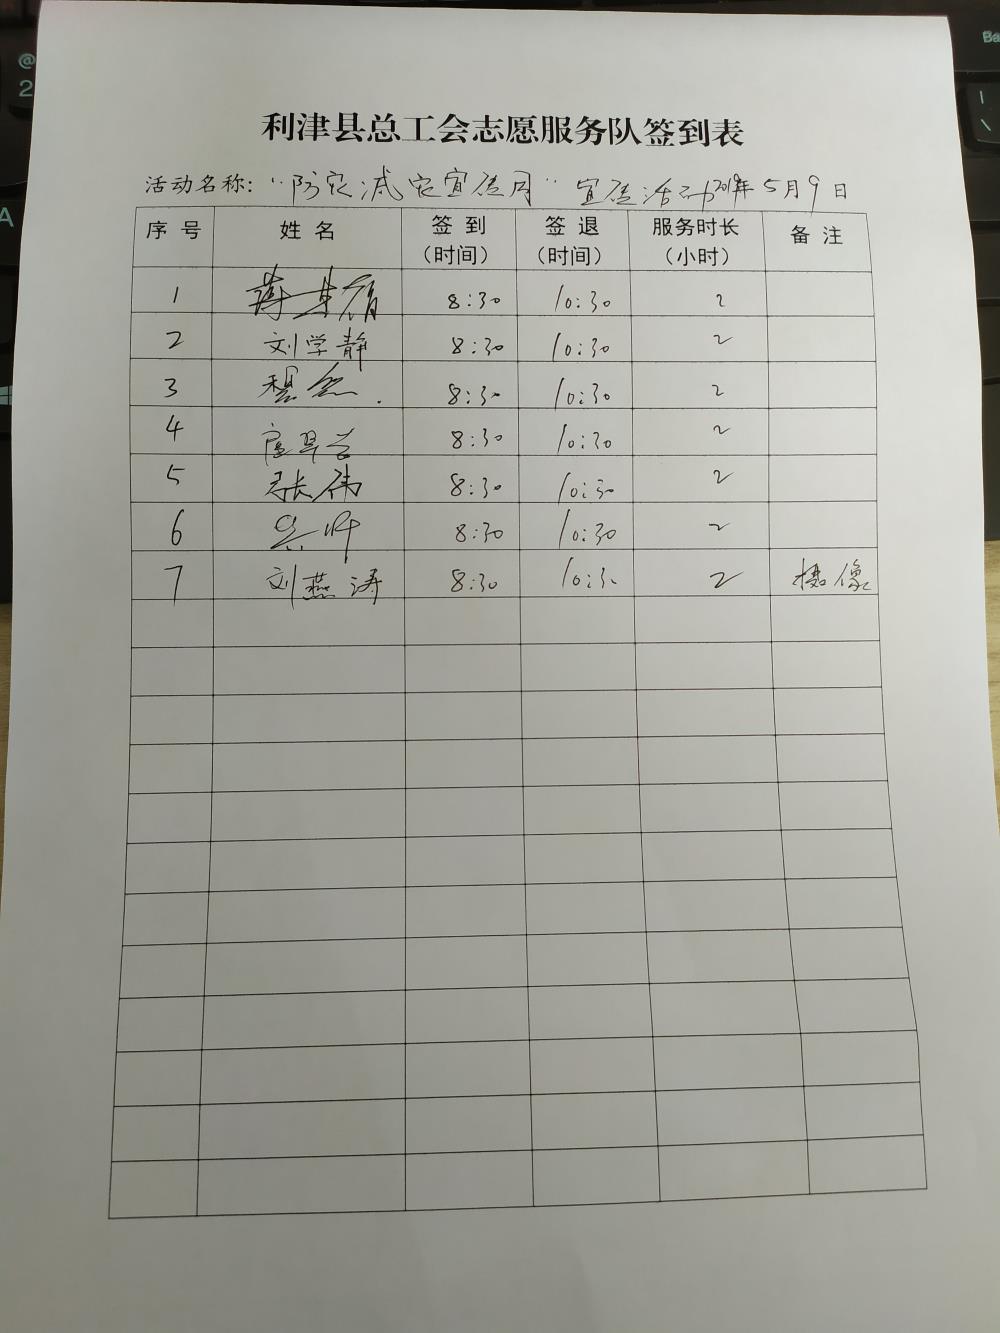 利津县总工会志愿服务队签到表
活动名称：“防灾减灾宣传周”宣传活动 2019年5月9日
序号 姓名 签到（时间） 签退（时间） 服务时长（小时） 备注
1 8:30 10:30 2
2 刘学静 8:30 10:30 2
3 8:30 10:30 2
4 8:30 10:30 2
5 张伟 8:30 10:30 2
6 8:30 10:30 2
7 刘燕涛 8:30 10:30 2 摄像